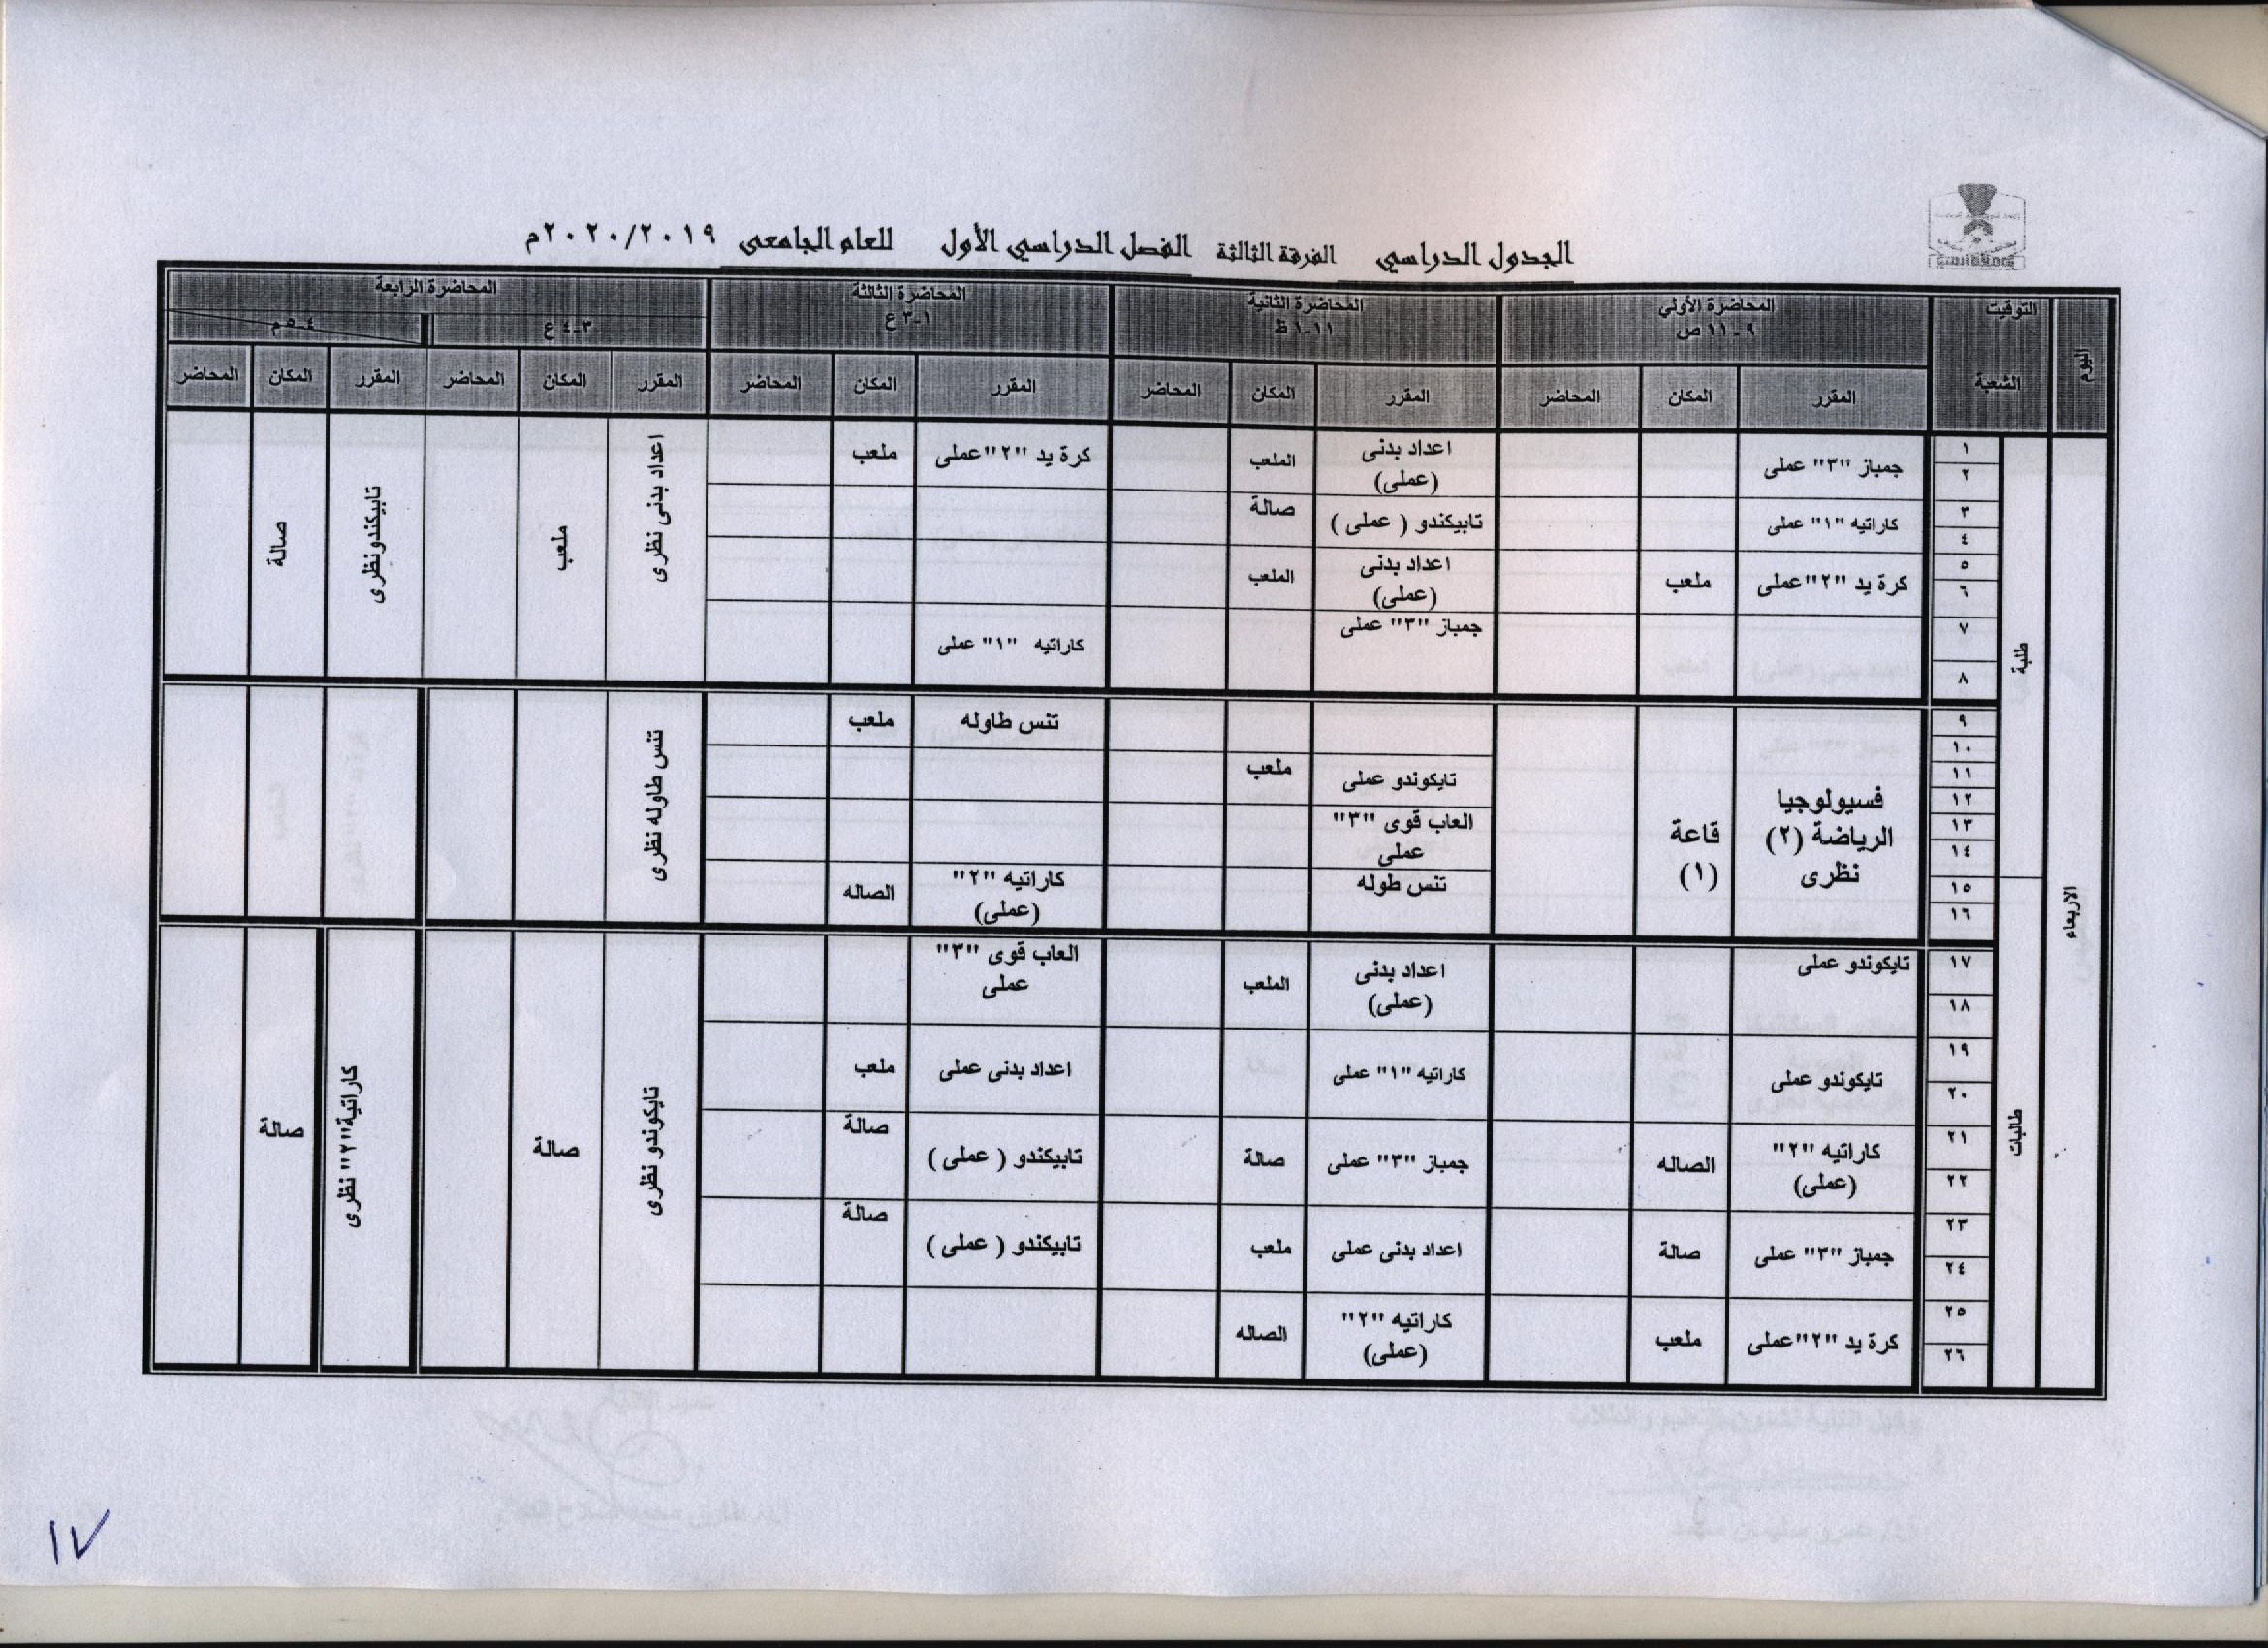 الجدول الدراسي الفرقة الثالثة الفصل الدراسي الأول للعام الجامعى ٢٠٢٠/٢٠١٩م
اليوم التوقيت المحاضرة الأولي المحاضرة الثانية المحاضرة الثالثة المحاضرة الرابعة
٩-١١ ص ١١-١ ظ ١-٣ ع ٣-٤ ع ٤-٥ م
الشعبة المقرر المكان المحاضر المقرر المكان المحاضر المقرر المكان المحاضر المقرر المكان المحاضر المقرر المكان المحاضر
الاربعاء
طلبة
١
٢
جمباز "٣" عملى
اعداد بدنى
(عملى)
الملعب
كرة يد "٢"عملى
ملعب
اعداد بدنى نظرى
ملعب
تابيكندونظرى
صالة
٣
٤
كاراتيه "١" عملى
تابيكندو ( عملى )
صالة
٥
٦
كرة يد "٢"عملى
ملعب
اعداد بدنى
(عملى)
الملعب
٧
٨
جمباز "٣" عملى
كاراتيه "١" عملى
٩
١٠
فسيولوجيا
الرياضة (٢)
نظرى
قاعة
(١)
تنس طاوله
ملعب
تنس طاوله نظرى
١١
١٢
تايكوندو عملى
ملعب
١٣
١٤
العاب قوى "٣"
عملى
طالبات
١٥
١٦
تنس طوله
كاراتيه "٢"
(عملى)
الصاله
١٧
١٨
تايكوندو عملى
اعداد بدنى
(عملى)
الملعب
العاب قوى "٣"
عملى
تايكوندو نظرى
صالة
كاراتية"٢" نظرى
صالة
١٩
٢٠
تايكوندو عملى
كاراتيه "١" عملى
اعداد بدنى عملى
ملعب
٢١
٢٢
كاراتيه "٢"
(عملى)
الصاله
جمباز "٣" عملى
صالة
تابيكندو ( عملى )
صالة
٢٣
٢٤
جمباز "٣" عملى
صالة
اعداد بدنى عملى
ملعب
تابيكندو ( عملى )
صالة
٢٥
٢٦
كرة يد "٢"عملى
ملعب
كاراتيه "٢"
(عملى)
الصاله
١٧